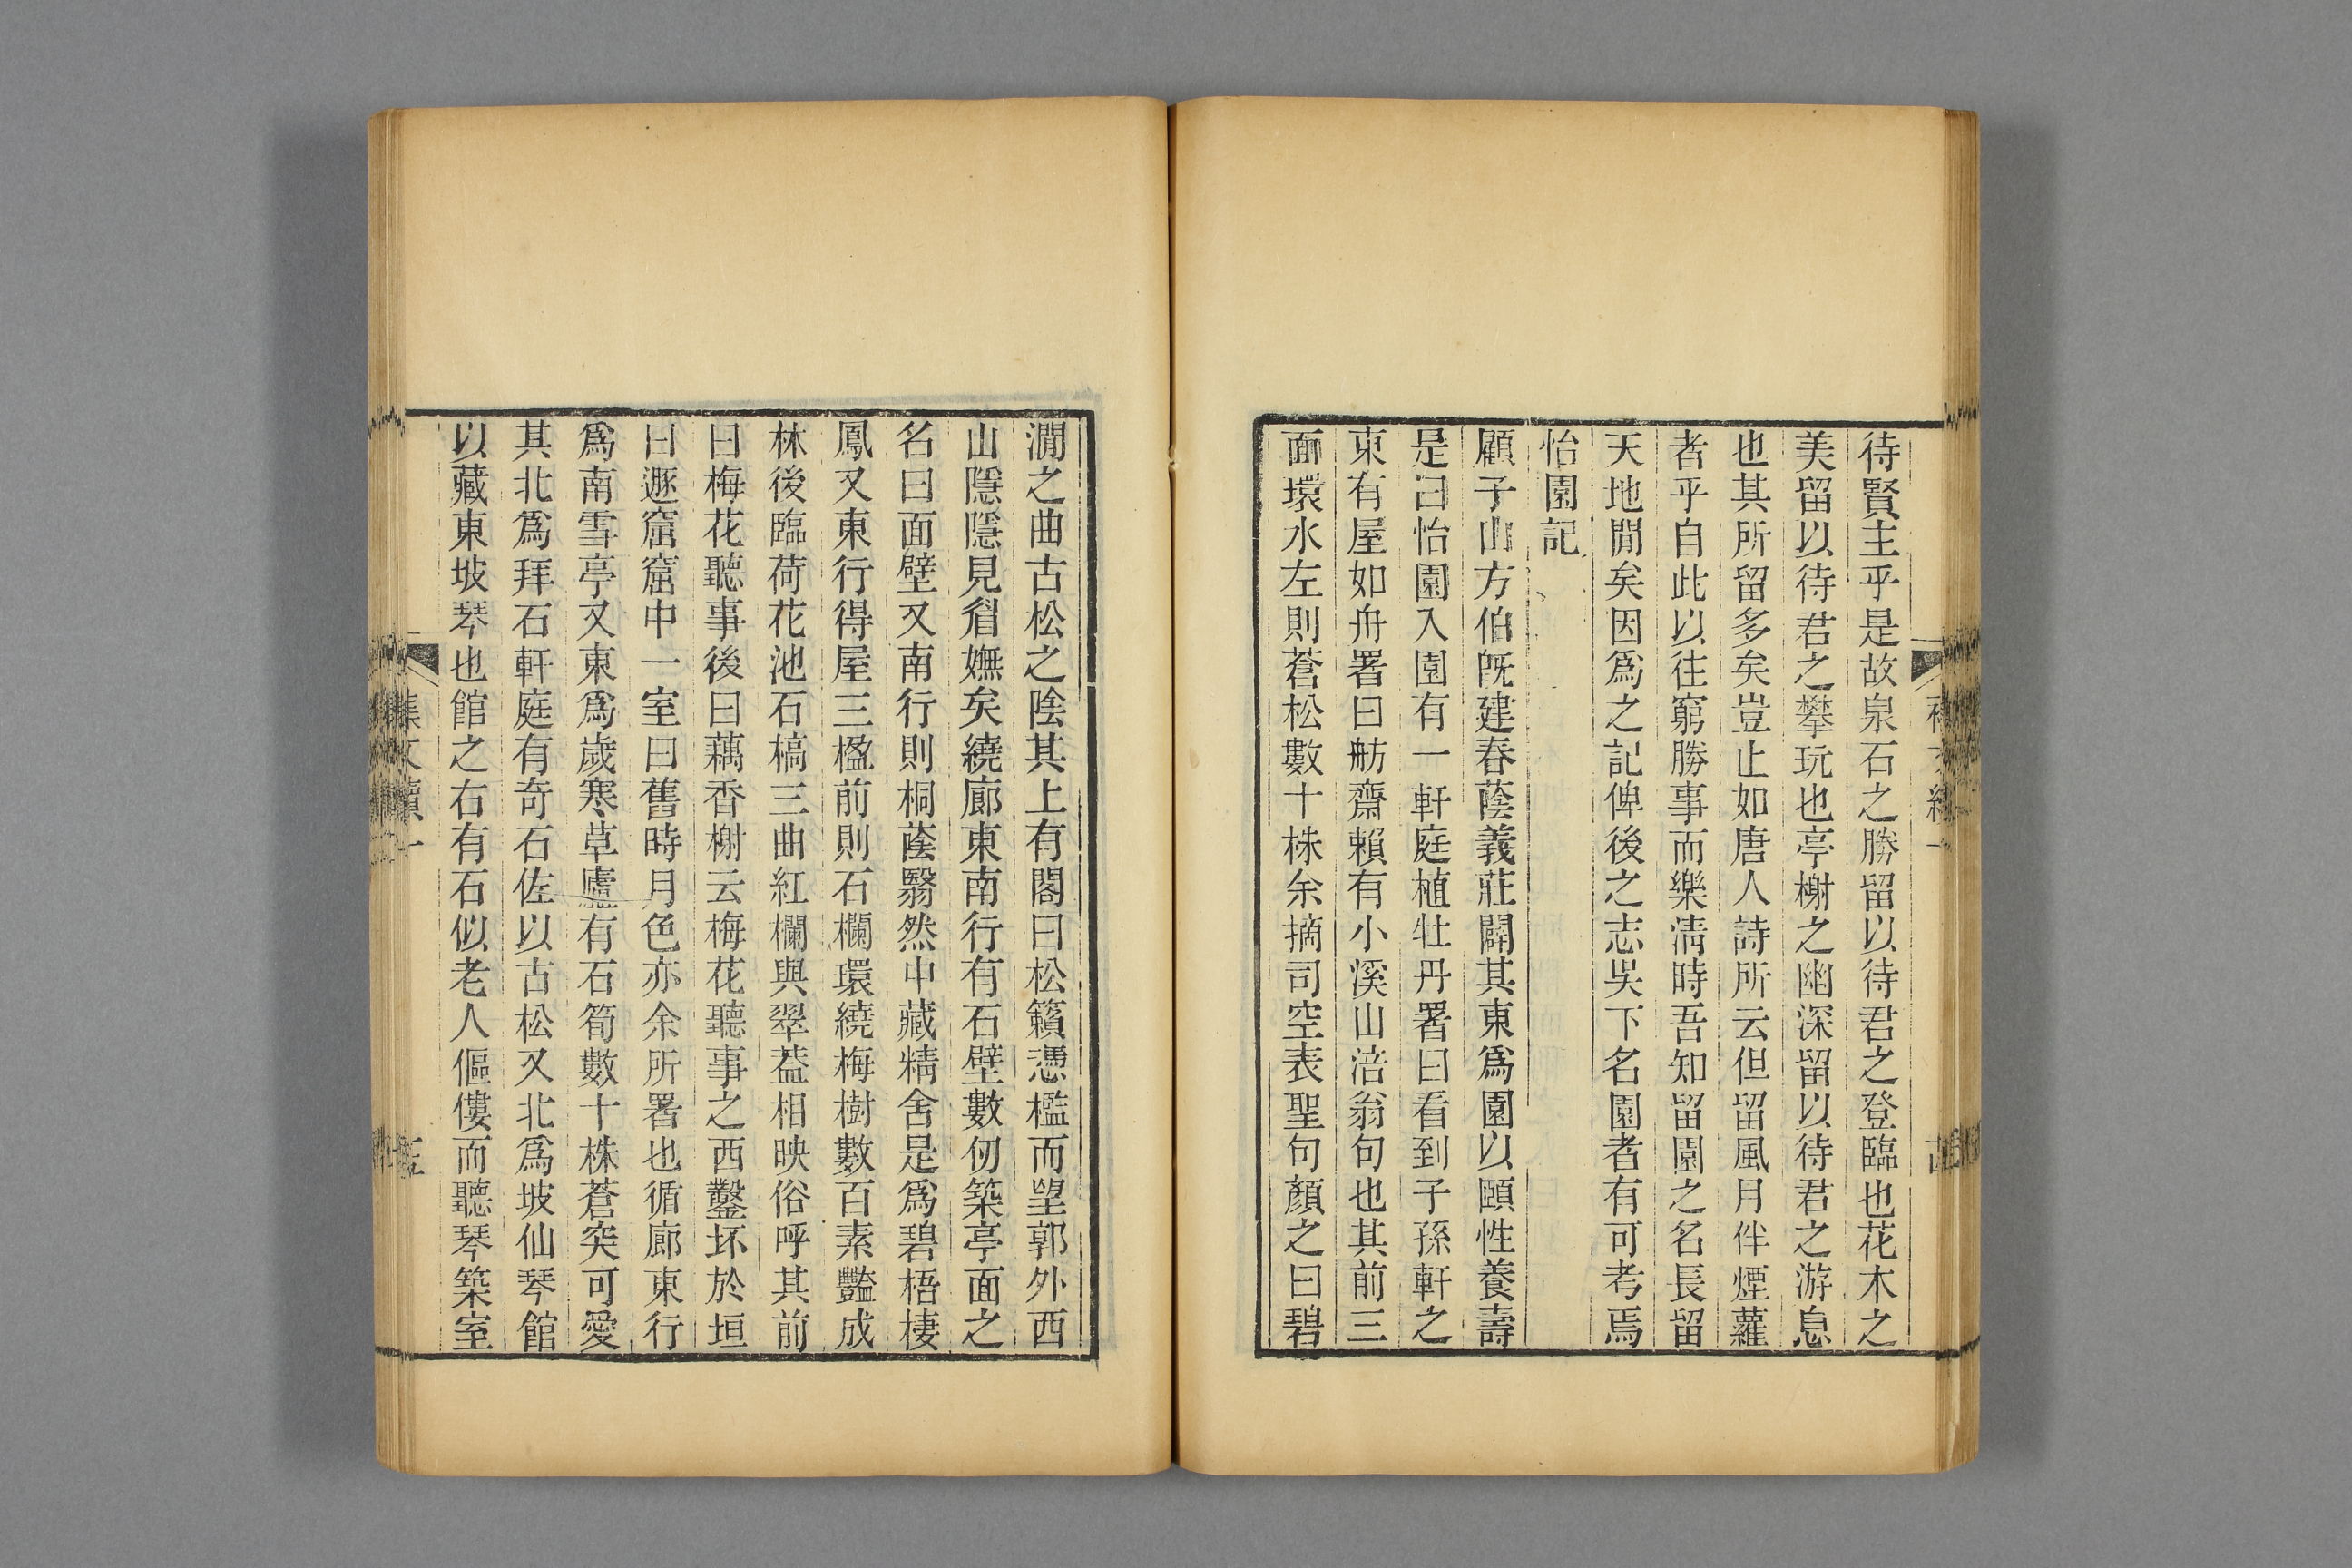 待賢主乎是故泉石之勝留以待君之登臨也花木之
美留以待君之攀玩也亭榭之幽深留以待君之游息
也其所留多矣豈止如唐人詩所云但留風月伴煙蘿
者乎自此以往窮勝事而樂淸時吾知留園之名長留
天地閒矣因爲之記俾後之志吳下名園者有可考焉
怡園記
顧子山方伯旣建春蔭義莊闢其東爲園以頤性養壽
是曰怡園入園有一軒庭植牡丹署曰看到子孫軒之
東有屋如舟署曰舫齋賴有小溪山涪翁句也其前三
面環水左則蒼松數十株余摘司空表聖句顏之曰碧
澗之曲古松之陰其上有閣曰松籟憑檻而望郭外西
山隱隱見眉嫵矣繞廊東南行有石壁數仞築亭面之
名曰面壁又南行則桐蔭翳然中藏精舍是爲碧梧棲
鳳又東行得屋三楹前則石欄環繞梅樹數百素豔成
林後臨荷花池石橋三曲紅欄與翠葢相映俗呼其前
曰梅花聽事後曰藕香榭云梅花聽事之西鑿坏於垣
曰遯窟窟中一室曰舊時月色亦余所署也循廊東行
爲南雪亭又東爲歲寒草廬有石筍數十株蒼突可愛
其北爲拜石軒庭有奇石佐以古松又北爲坡仙琴館
以藏東坡琴也館之右有石似老人傴僂而聽琴築室
集文續一